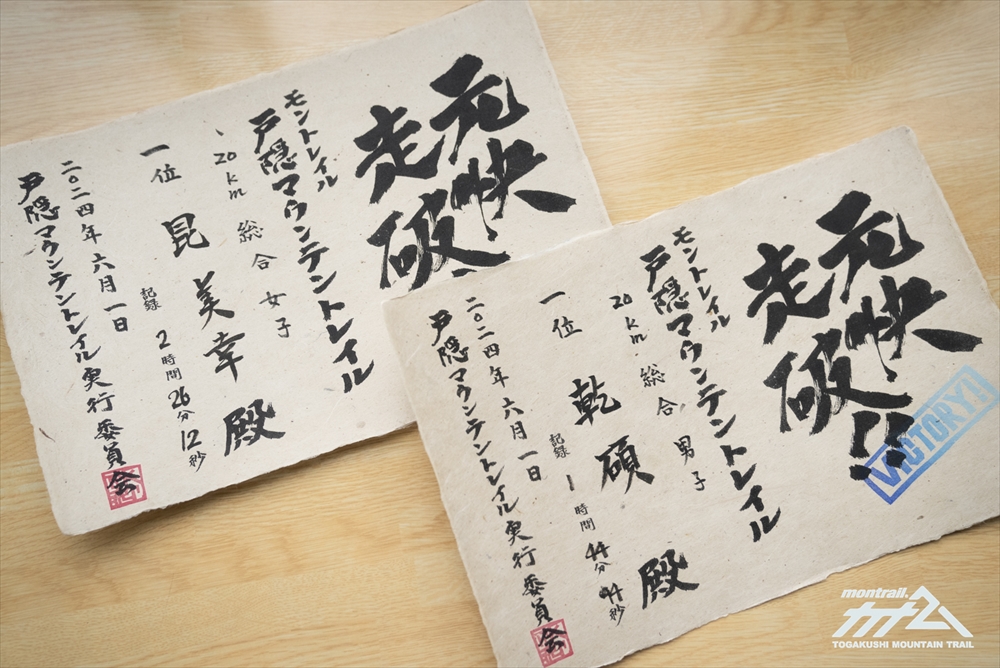 完快
走破
モントレイル
戸隠マウンテントレイル
20km 総合女子
一位 昆美幸 殿
記録 2時間26分12秒
二〇二四年六月一日
戸隠マウンテントレイル実行委員会
完快
走破!!
VICTORY!
モントレイル
戸隠マウンテントレイル
20km 総合 男子
一位 乾碩 殿
記録 1時間44分44秒
二〇二四年六月一日
戸隠マウンテントレイル実行委員会
montrail.
TOGAKUSHI MOUNTAIN TRAIL